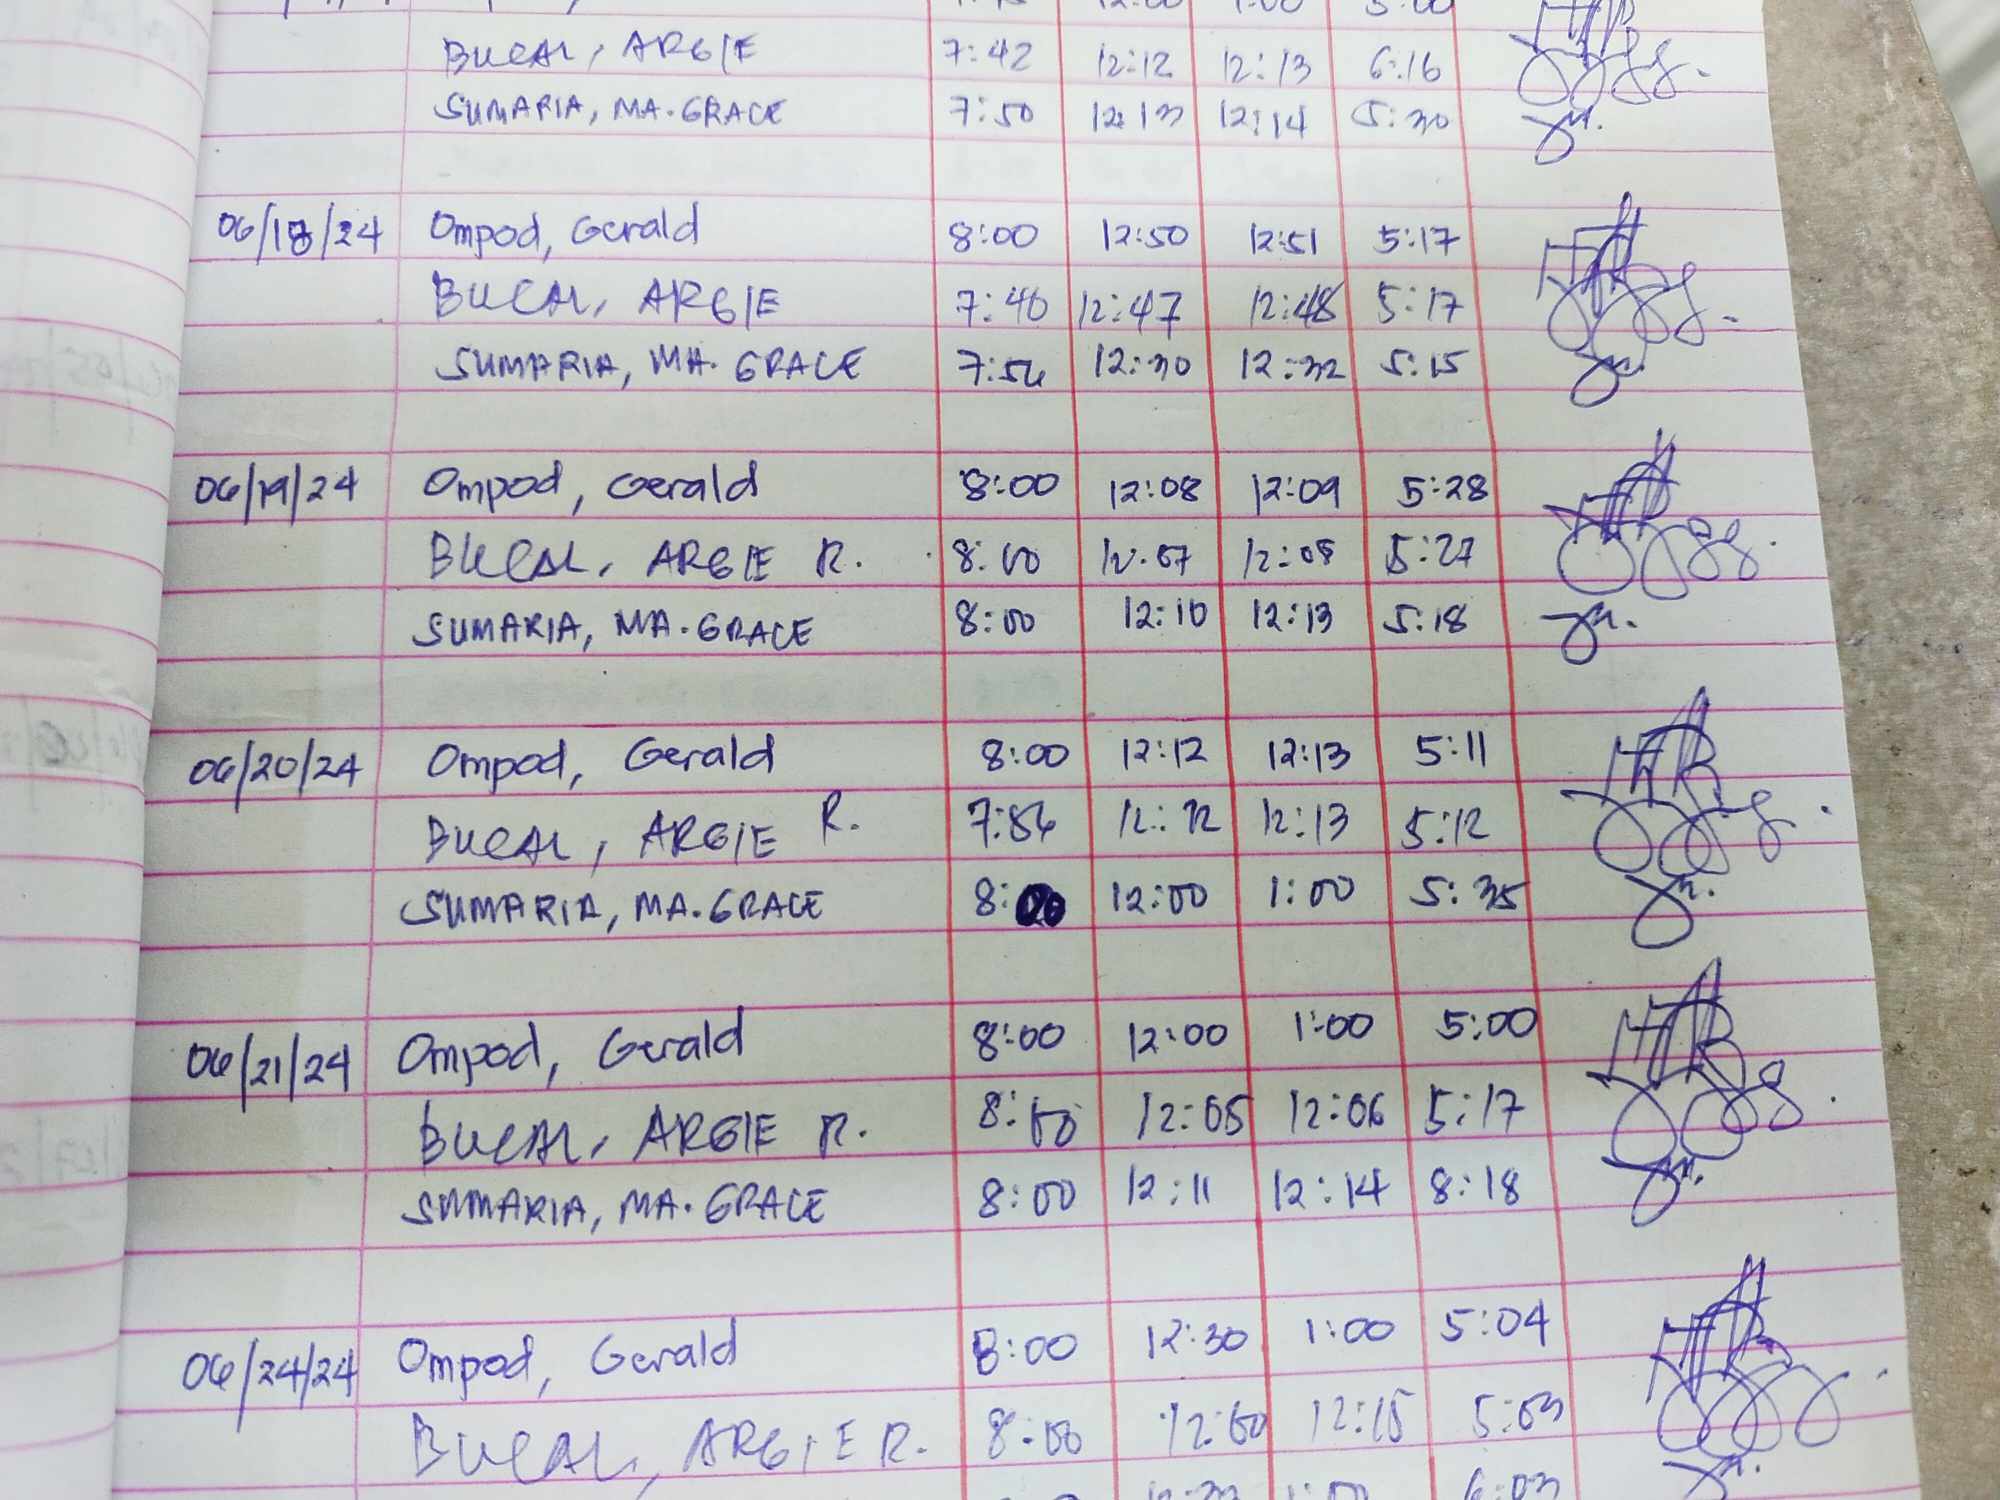 BUCAL, ARGIE 7:42 12:12 12:13 6:16
SUMARIA, MA. GRACE 7:50 12:13 12:14 5:30
06/18/24 Ompod, Gerald 8:00 12:50 12:51 5:17
BUCAL, ARGIE 7:40 12:47 12:48 5:17
SUMARIA, MA. GRACE 7:56 12:30 12:32 5:15
06/19/24 Ompod, Gerald 8:00 12:08 12:09 5:28
BUCAL, ARGIE R. 8:00 12:07 12:08 5:27
SUMARIA, MA. GRACE 8:00 12:10 12:13 5:18
06/20/24 Ompod, Gerald 8:00 12:12 12:13 5:11
BUCAL, ARGIE R. 7:56 12:12 12:13 5:12
SUMARIA, MA. GRACE 8:00 12:00 1:00 5:35
06/21/24 Ompod, Gerald 8:00 12:00 1:00 5:00
BUCAL, ARGIE R. 8:00 12:05 12:06 5:17
SUMARIA, MA. GRACE 8:00 12:11 12:14 8:18
06/24/24 Ompod, Gerald 8:00 12:30 1:00 5:04
BUCAL, ARGIE R. 8:00 12:00 12:15 5:03